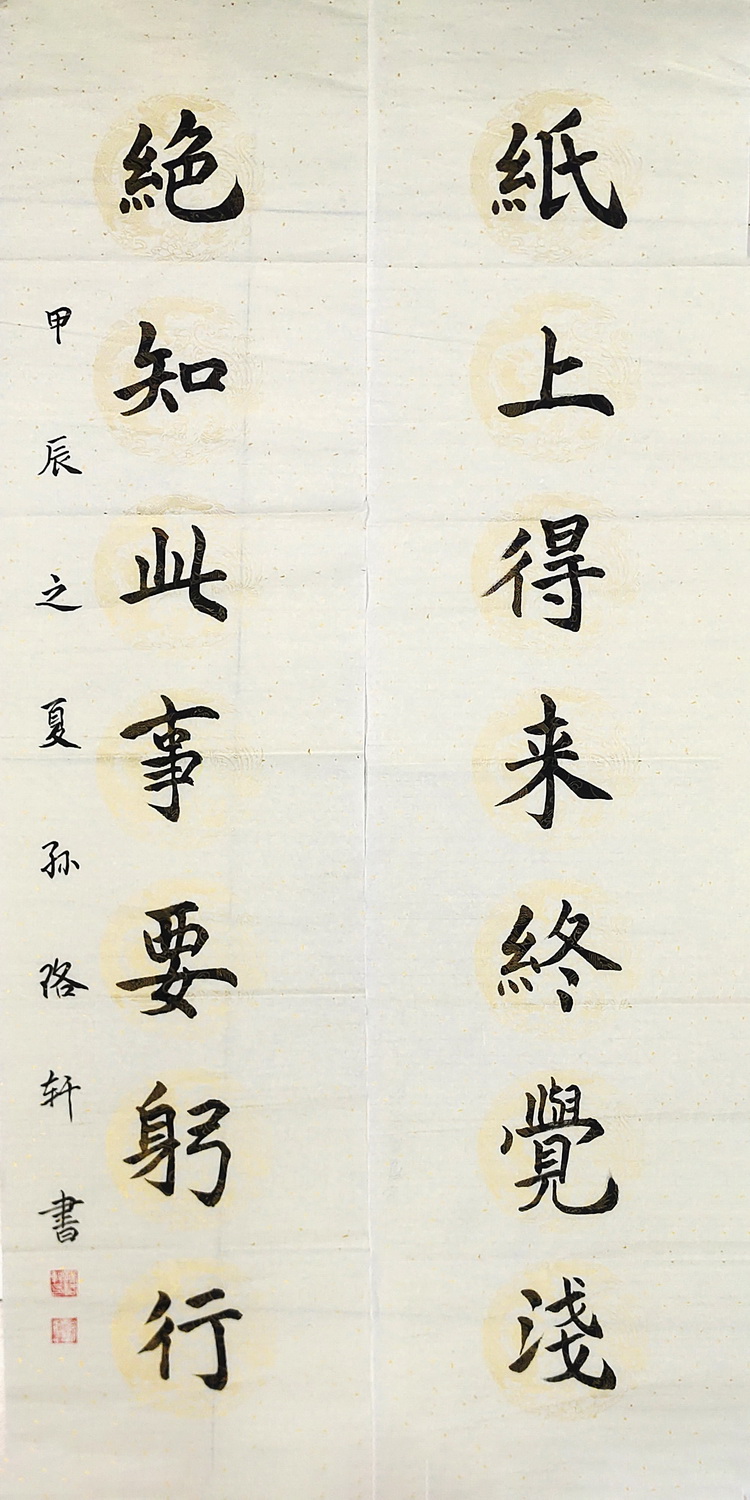 紙上得来終覺淺
絶知此事要躬行
甲辰之夏孙珞轩書